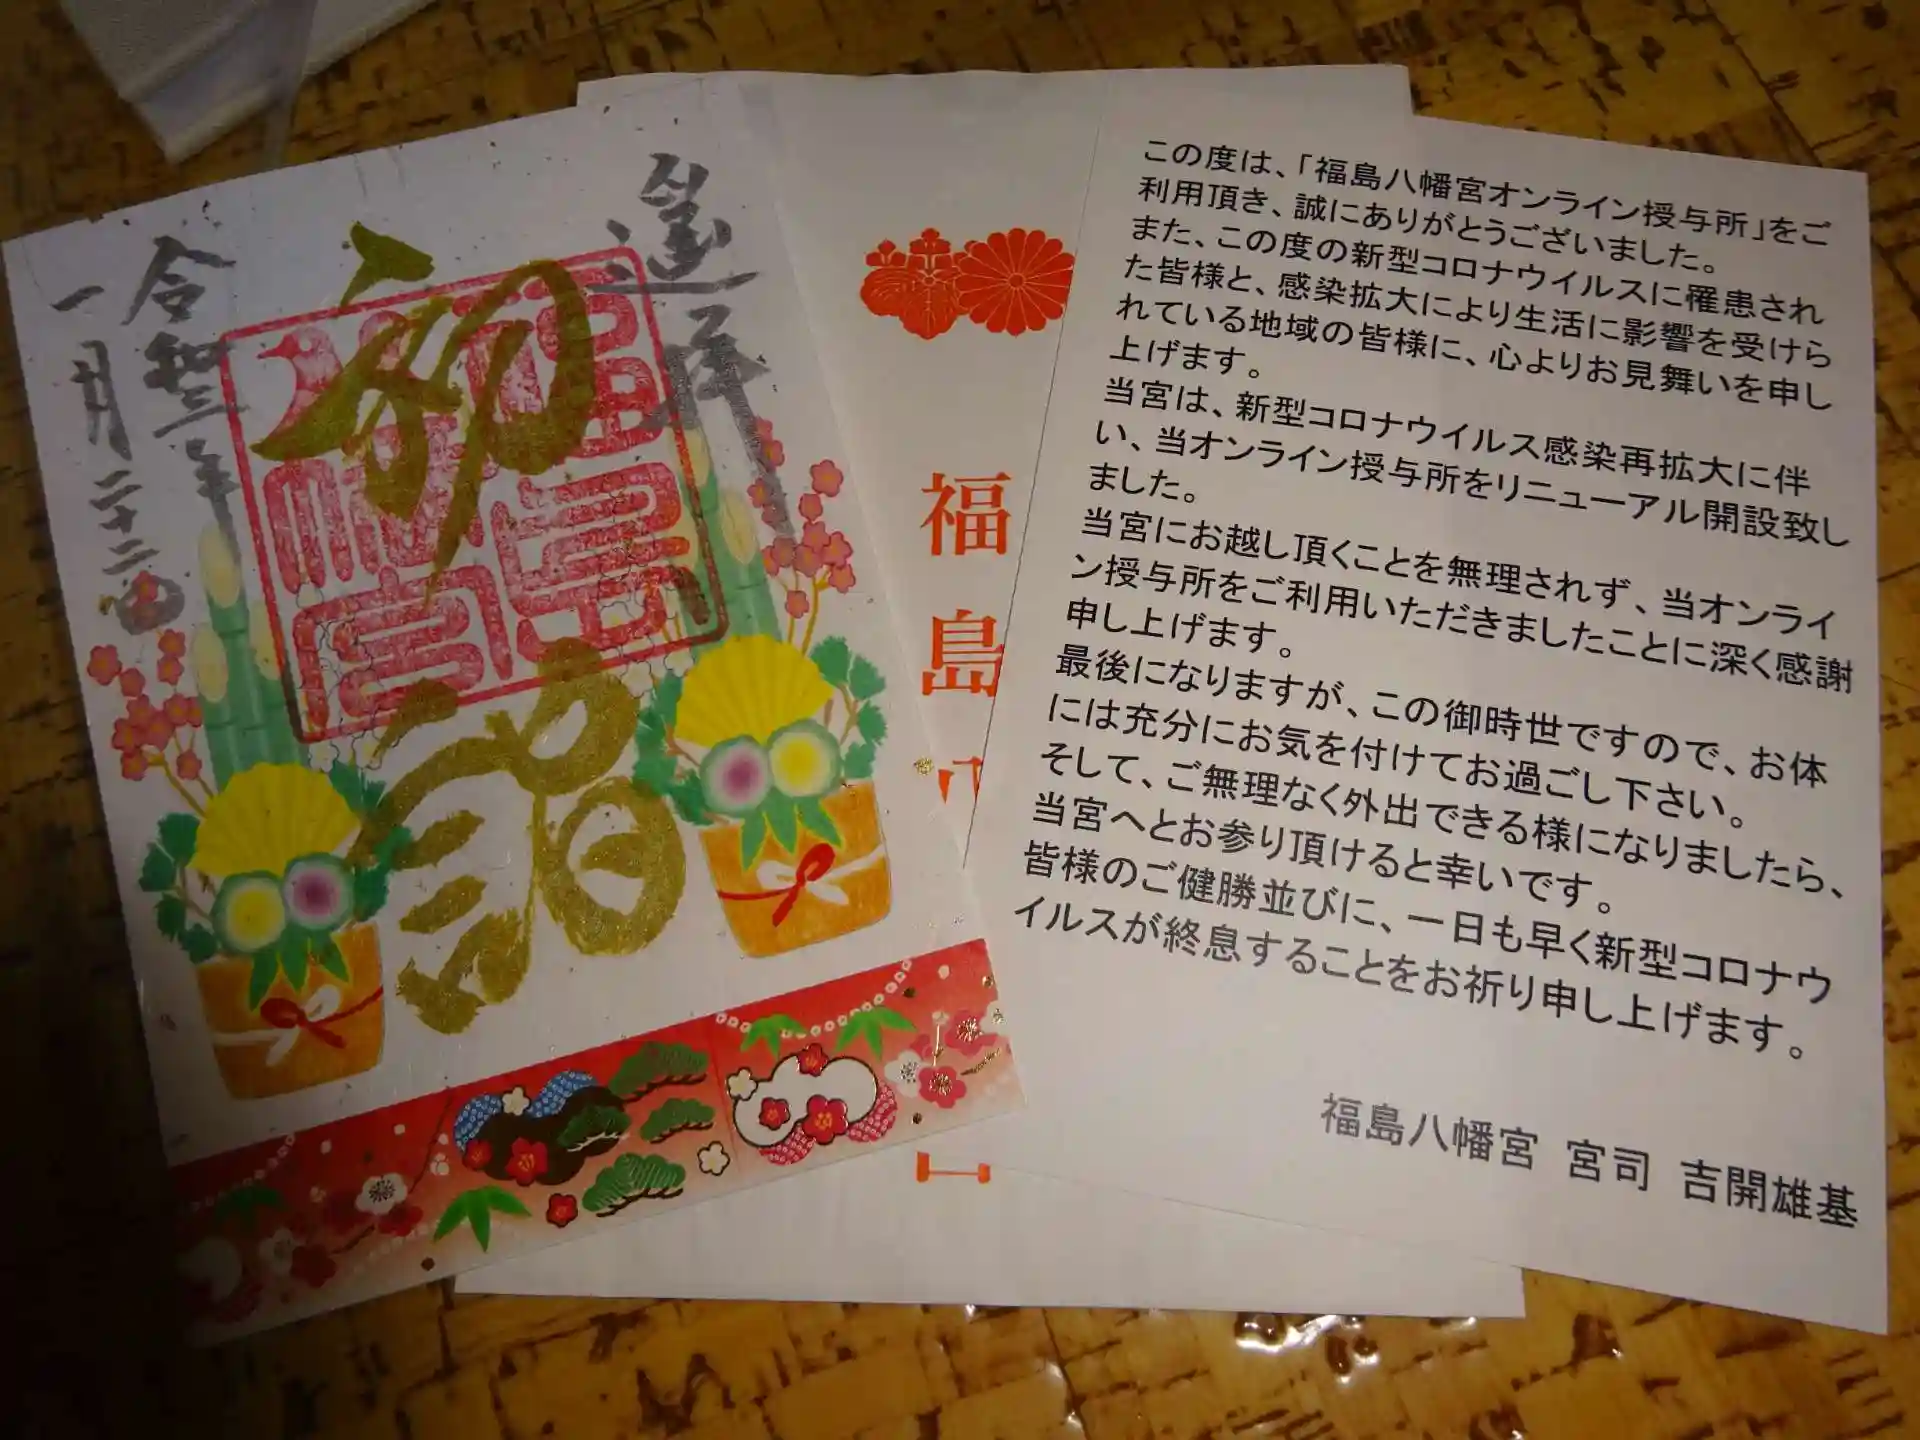 遥拝
初詣
福島八幡宮
令和三年
一月二十二日
福島
この度は、「福島八幡宮オンライン授与所」をご
利用頂き、誠にありがとうございました。
また、この度の新型コロナウイルスに罹患され
た皆様と、感染拡大により生活に影響を受けら
れている地域の皆様に、心よりお見舞いを申し
上げます。
当宮は、新型コロナウイルス感染再拡大に伴
い、当オンライン授与所をリニューアル開設致し
ました。
当宮にお越し頂くことを無理されず、当オンライ
ン授与所をご利用いただきましたことに深く感謝
申し上げます。
最後になりますが、この御時世ですので、お体
には充分にお気を付けてお過ごし下さい。
そして、ご無理なく外出できる様になりましたら、
当宮へとお参り頂けると幸いです。
皆様のご健勝並びに、一日も早く新型コロナウ
イルスが終息することをお祈り申し上げます。
福島八幡宮 宮司 吉開雄基